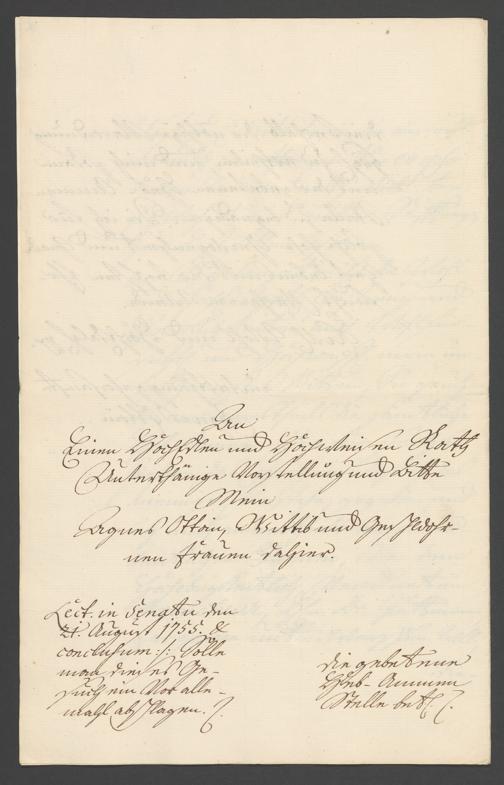 An
Einen HochEdlen und Hochweisen Rath
Unterthänige Vorstellung und Bitte
Mein
Agnes Ottin, Wittib und Geschwohr-
nen Frauen dahier.
Lect. in Senatu den
21. August 1755. &
conclusum :/: Solle
man dieses Ge-
such ein Vor alle-
mahl abschlagen.
die gebetenne
Heb-Ammen
Stelle betr.